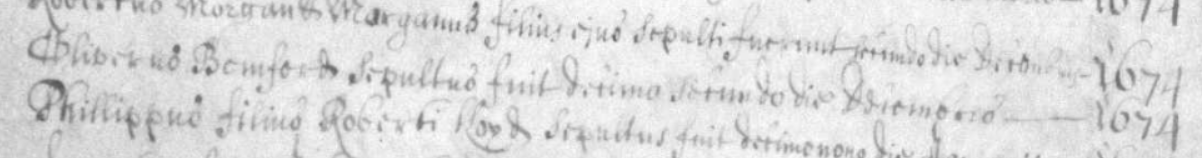 Robertus Morgan & Morganus filius ejus sepulti fuerunt secundo die Decembris 1674
Oliverus Bomford sepultus fuit decimo secundo die Decembris 1674
Phillippus filius Roberti Lloyd sepultus fuit decimonono die